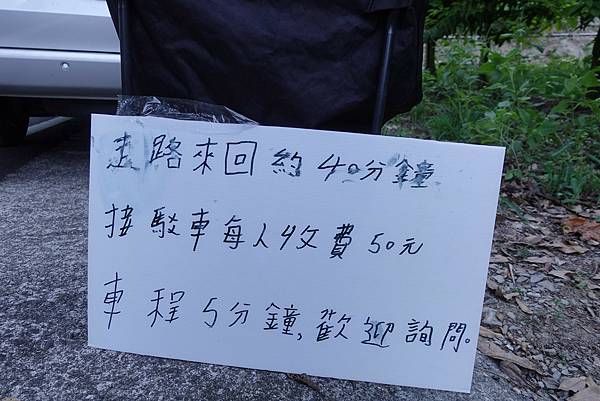 走路來回約40分鐘
接駁車每人收費50元
車程5分鐘,歡迎詢問。